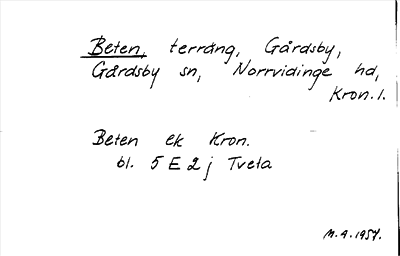 Beten, terräng, Gårdsby,
Gårdsby sn, Norrvidinge hd,
Kron. l.
Beten ek Kron.
bl. 5 E 2 j Tveta
M.A. 1957.